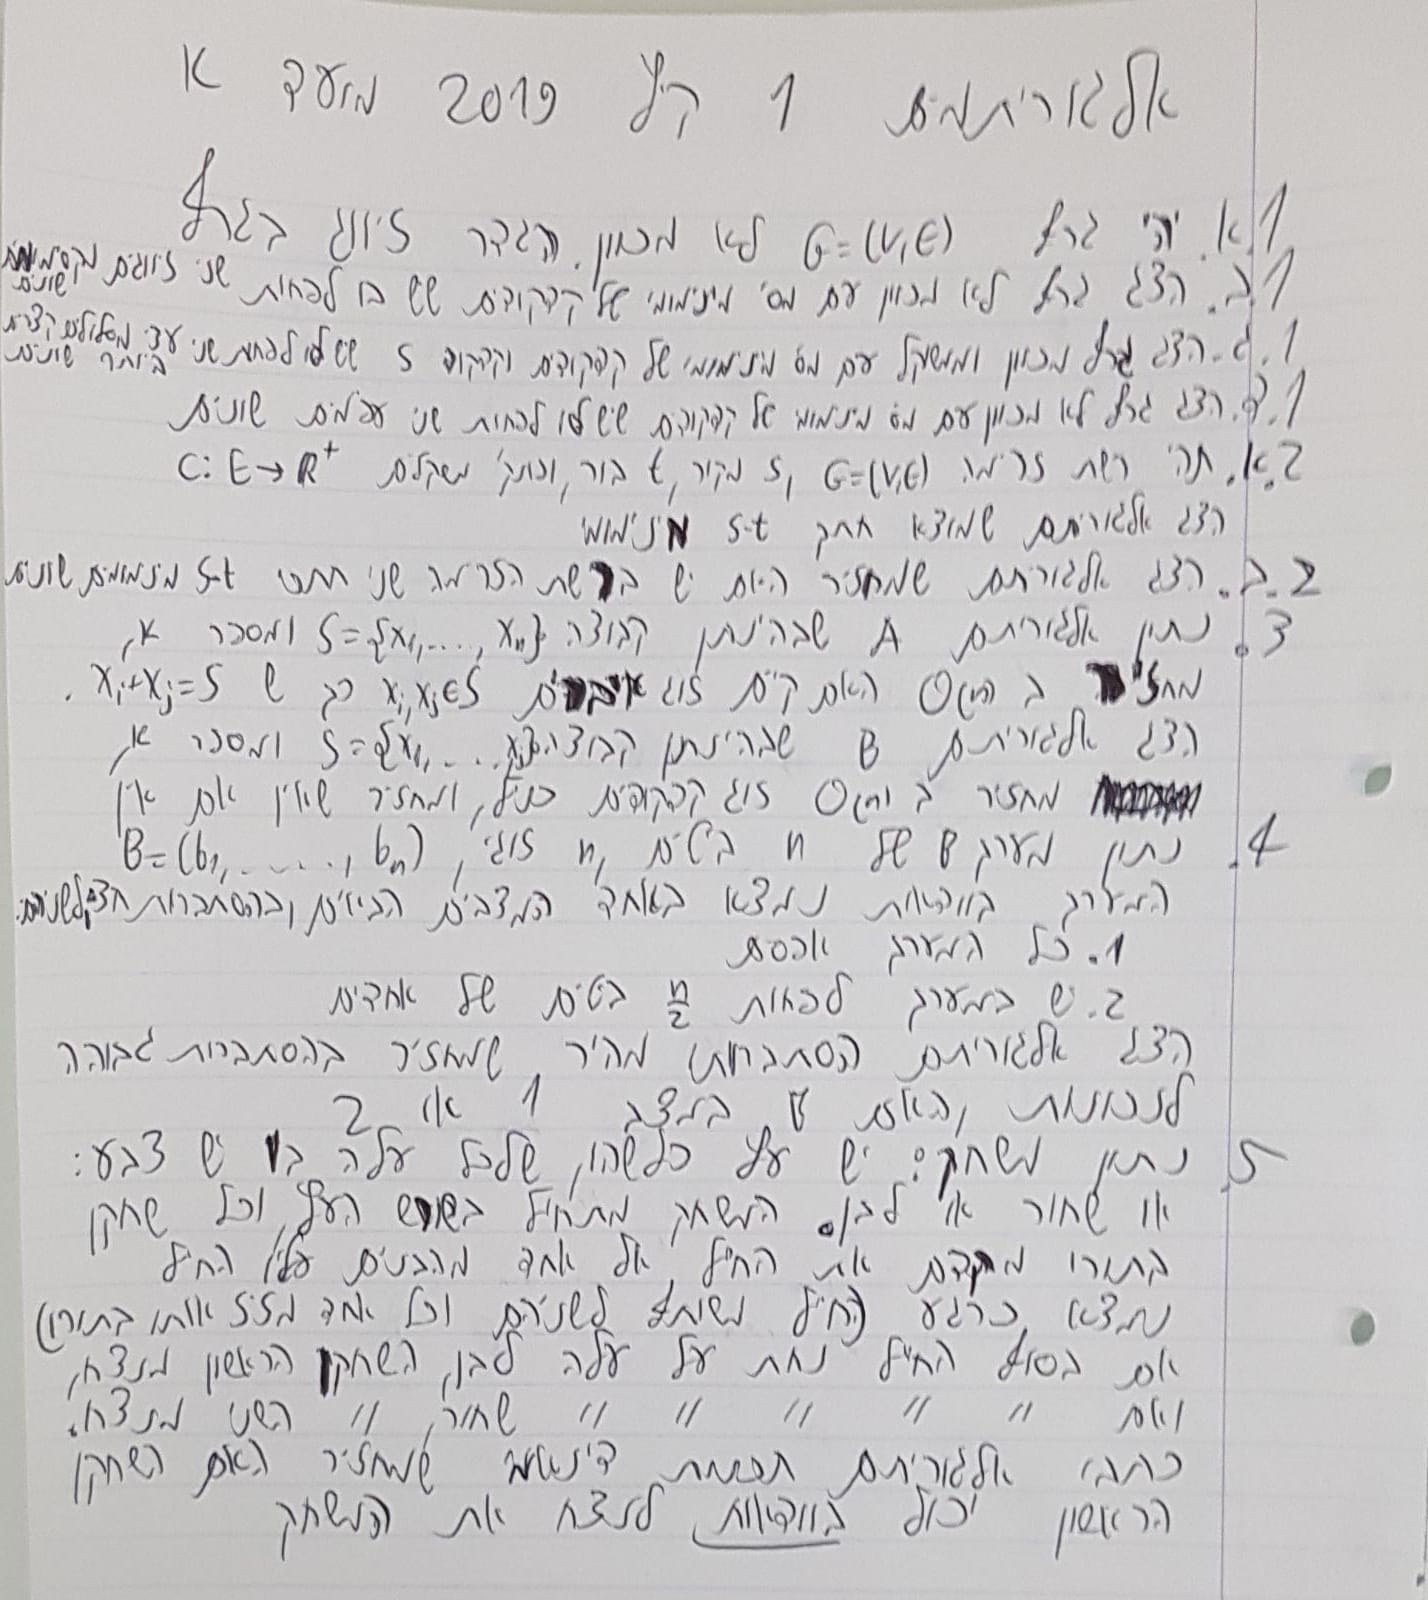 אלגוריתמים 1 קיץ 2019 מועד א
1.א. יהי גרף G=(V,E) לא מכוון. הגדר זיווג בגרף
1.ב. הצג גרף לא מכוון עם מס' מינימומי של קדקודים שיש בו לפחות שני זיווגים מקסימומים שונים
1.ג. הצג גרף מכוון וממשקל עם מס' מינימומי של קדקודים וקדקוד s שיש לו לפחות שני עצי מסלולים קצרים ביותר שונים
1.ד. הצג גרף לא מכוון עם מס' מינימומי של קדקודים שיש לו לפחות שני עפ"מים שונים
2.א. תהי רשת זרימה G=(V,E), s מקור, t בור, ופונק' משקלים C: E→R⁺
הצג אלגוריתם שמוצא חתך s-t מינימומי
2.ב. הצג אלגוריתם שמחזיר האם יש ברשת הזרימה שני חתכי s-t מינימומים שונים
3. נתון אלגוריתם A שבהינתן קבוצה S={x₁,...,xₙ} ומספר א,
מחזיר ב האם קיים זוג איברים xᵢ,xⱼ∈S כך ש xᵢ+xⱼ=S.
הצג אלגוריתם B שבהינתן קבוצה S={x₁,... ומספר א,
מחזיר ב זוג קדקודים כנ"ל, ומחזיר שאין אם אין
4. נתון מערך B של n ביטים, n זוגי, B=(b₁,.....,bₙ)
המערך בוודאות נמצא באחד המצבים הבאים, ובהסתברות חצי לשניהם:
1. כל המערך אפסים
2. יש במערך לפחות n/2 ביטים של אחדים
הצג אלגוריתם הסתברותי מהיר, שמחזיר בהסתברות גבוהה
לנכונות, האם B במצב 1 או 2
5. נתון משחק: יש עץ כלשהו, שלכל עלה בו יש צבע:
או שחור או לבן. המשחק מתחיל בשורש העץ, וכל שחקן
בתורו מקדם את החייל אל אחד מהבנים עליו החייל
נמצא כרגע (החייל משותף לשניהם וכל אחד מזיז אותו בתורו)
אם בסוף החייל נחת על עלה לבן, השחקן הראשון מנצח,
ואם " " " " " שחור, " השני מנצח.
כתבי אלגוריתם תכנות דינאמי שמחזיר האם השחקן
הראשון יכול בוודאות לנצח את המשחק